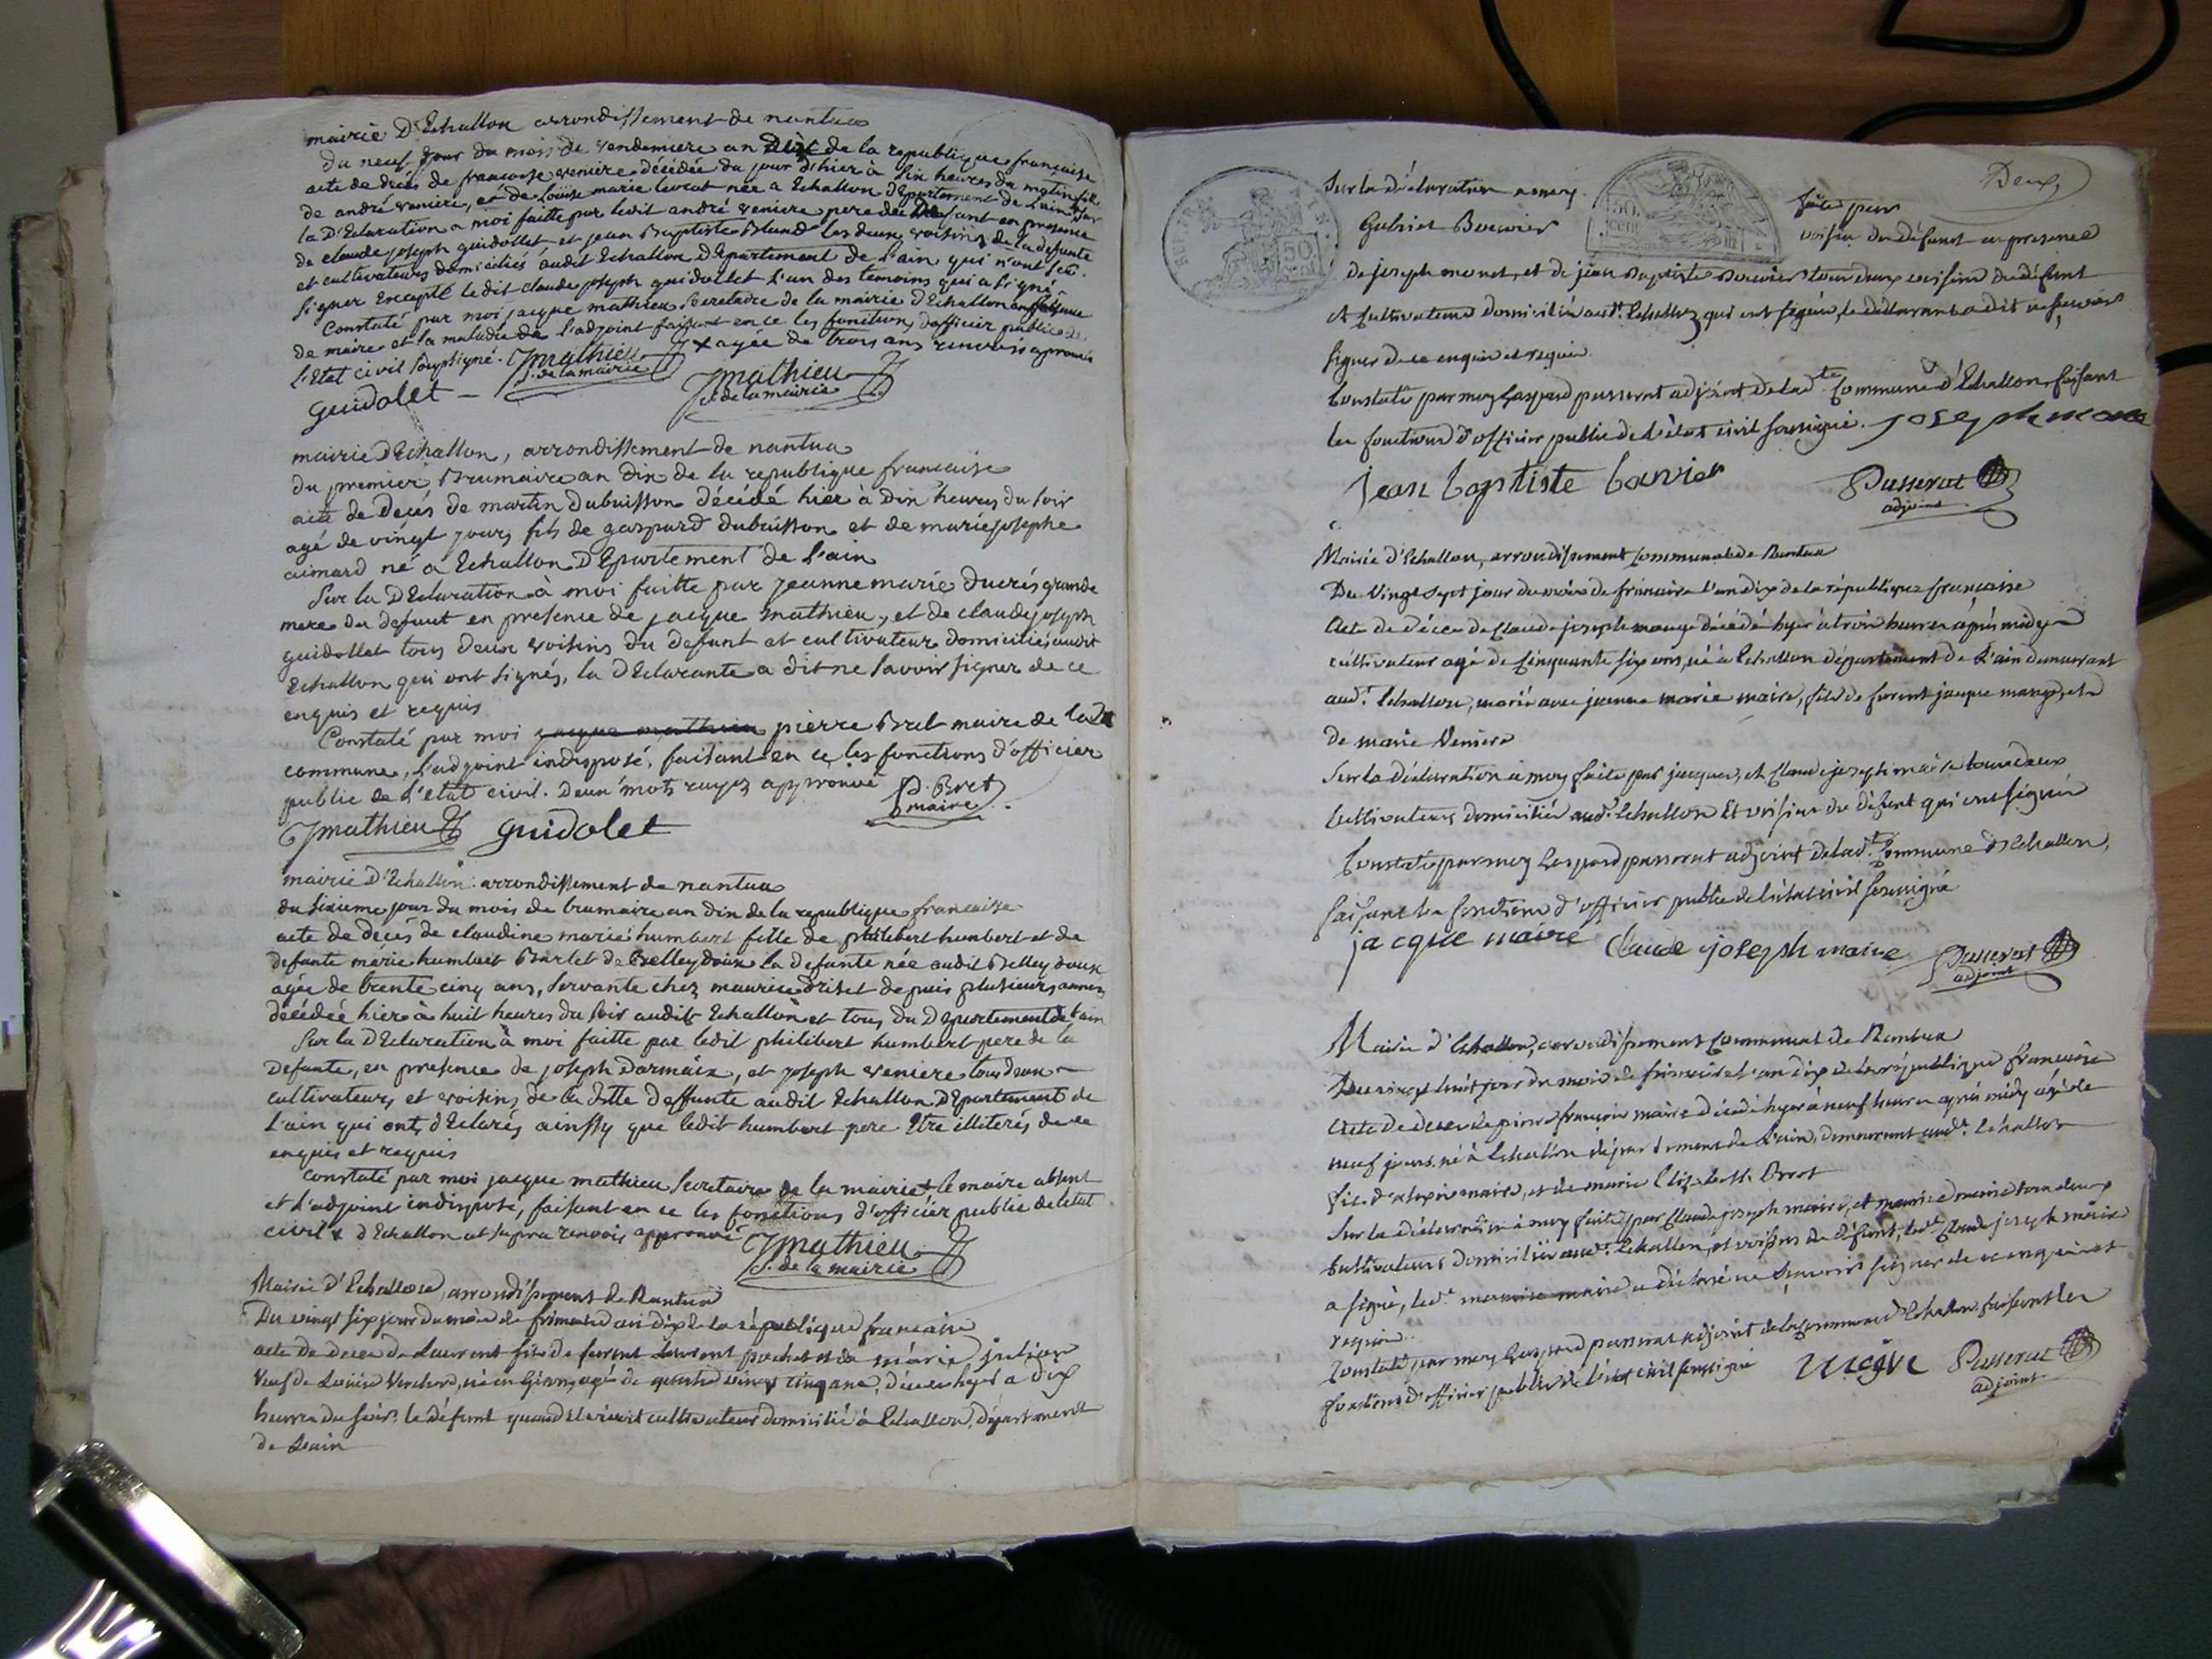 mairie D'Echallon arrondissement de nantua
du neuf jour du mois de vendemiere an dix de la republique française
acte de décés de francoise veniere décédée du jour d'hier à six heures du matin fille
de andré veniere, et de Louise marie levrat née a Echallon Département de L'ain sur
la D'Eclaration a moi faitte par ledit andré veniere pere de la defunte en presence
de claude joseph guidollet et jean Baptiste Blund les deux voisins de la defunte
et cultivateurs domiciliés audit Echallon D'Epartement de L'ain qui n'ont seu
signer Excepté ledit claude joseph guidollet L'un des temoins qui a signé
Constaté par moi jacque mathieu Secretaire de la mairie D'Echallon
de maire et la maladie de L'adjoint faisant en ce les fonctions d'officier public de
L'Etat civil soussigné. Jmathieu x agée de trois ans renvois approuvés
S. de la mairie
guidolet Jmathieu
S. de la mairie
mairie D'Echallon, arrondissement de nantua
du premier Brumaire an dix de la republique française
acte de Decés de martin dubuisson décédé hier à dix heures du soir
agé de vingt jours fils de gaspard dubuisson et de marie josephe
aimard né a Echallon D'Epartement de L'ain
Sur la D'Eclaration à moi faitte par jeanne marie ducrés grande
mere du defunt en presence de jacque mathieu, et de claude joseph
guidollet tous deux voisins du defunt et cultivateurs domiciliés audit
Echallon qui ont signés, la D'Eclarante a dit ne savoir signer de ce
enquis et requis
Constaté par moi jacque mathieu pierre Bret maire de la de
commune, L'adjoint indisposé, faisant en ce les fonctions d'officier
public de L'etat civil. deux mots rayez approuvé P. Bret
maire
Jmathieu guidolet
mairie D'Echallon arrondissement de nantua
du sixieme jour du mois de brumaire an dix de la republique francaise
acte de décés de claudine marie humbert fille de philibert humbert et de
defunte marie humbert Barlet de Belleydoux la defunte née audit Belleydoux
agée de trente cinq ans, servante chez maurice driset depuis plusieurs années
décédée hier à huit heures du soir audit Echallon et tous du Département de L'ain
Sur la D'Eclaration à moi faitte par ledit philibert humbert pere de la
defunte, en presence de joseph darmaix, et joseph veniere tous deux
cultivateurs et voisins de la ditte deffunte audit Echallon D'Epartement de
L'ain qui ont d'Eclarés ainssy que ledit humbert pere Etre illiterés de ce
enquis et requis
Constaté par moi jacque mathieu Secretaire de la mairie + le maire absent
et l'adjoint indisposé, faisant en ce les fonctions d'officier public de l'etat
civil + d'Echallon at supra renvois approuvé Jmathieu
S. de la mairie
Mairie d'Echallon, arrondissement de Nantua
Du vingt six jour du mois de frimaire an dix de la république francaise
acte de décès de Laurent fils de Laurent pochet et de marie
Veuf de Louise agé de quatre vingt cinq ans, décédé hyer a dix
heures du soir. le défunt quand il vivoit cultivateur domicilié à Echallon, département
de L'ain
Deux
Sur la déclaration a moy faite par
Gabriel Bouvier voisin du défunt en presence
de joseph monet, et de jean Baptiste Bouvier tous deux voisins du défunt
et Cultivateurs domiciliés audt. Echallon qui ont signés, le déclarant a dit ne savoir
signer de ce enquis et requis
Constaté par moy Gaspard passerat adjoint de lad.te Commune d'Echallon, faisant
les fonctions d'officier public de l'état civil soussigné. joseph
jean baptiste bouvier Passerat
adjoint
Mairie d'Echallon, arrondissement Communal de Nantua
Du Vingt sept jour du mois de frimaire l'an dix de la république française
Acte de décès de Claude joseph décédé hyer à trois heures après midy
cultivateur agé de Cinquante six ans, né à Echallon département de L'ain demeurant
audt. Echallon, marié avec jeanne marie maire, fils de jacque et
de marie Veniere
Sur la déclaration à moy faite par jacques, et Claude joseph maire tous deux
Cultivateurs domiciliés audt. Echallon Et voisins du défunt qui ont signés
Constaté par moy Gaspard passerat adjoint de ladte. Commune d'Echallon,
faisant les fonctions d'officier public de l'état civil soussigné
jacque maire Claude joseph maire Passerat
adjoint
Mairie d'Echallon, arrondissement Communal de Nantua
Du vingt huit jour du mois de frimaire l'an dix de la république française
Acte de décès de pierre françois maire décédé hyer à neuf heures après midy agé de
neuf jours né à Echallon département de L'ain, demeurant audt. Echallon
fils d'alexis maire, et de marie Elizabeth Bret
Sur la déclaration à moy faite par Claude joseph maire, et maurice maire tous deux
Cultivateurs domiciliés audt. Echallon, et voisins du défunt, ledt. Claude joseph maire
a signé, ledt. maurice maire a déclaré ne savoir signer de ce enquis et
requis.
Constaté par moy Gaspard passerat adjoint de la Commune d'Echallon faisant les
fonctions d'officier public de l'état civil soussigné Passerat
adjoint